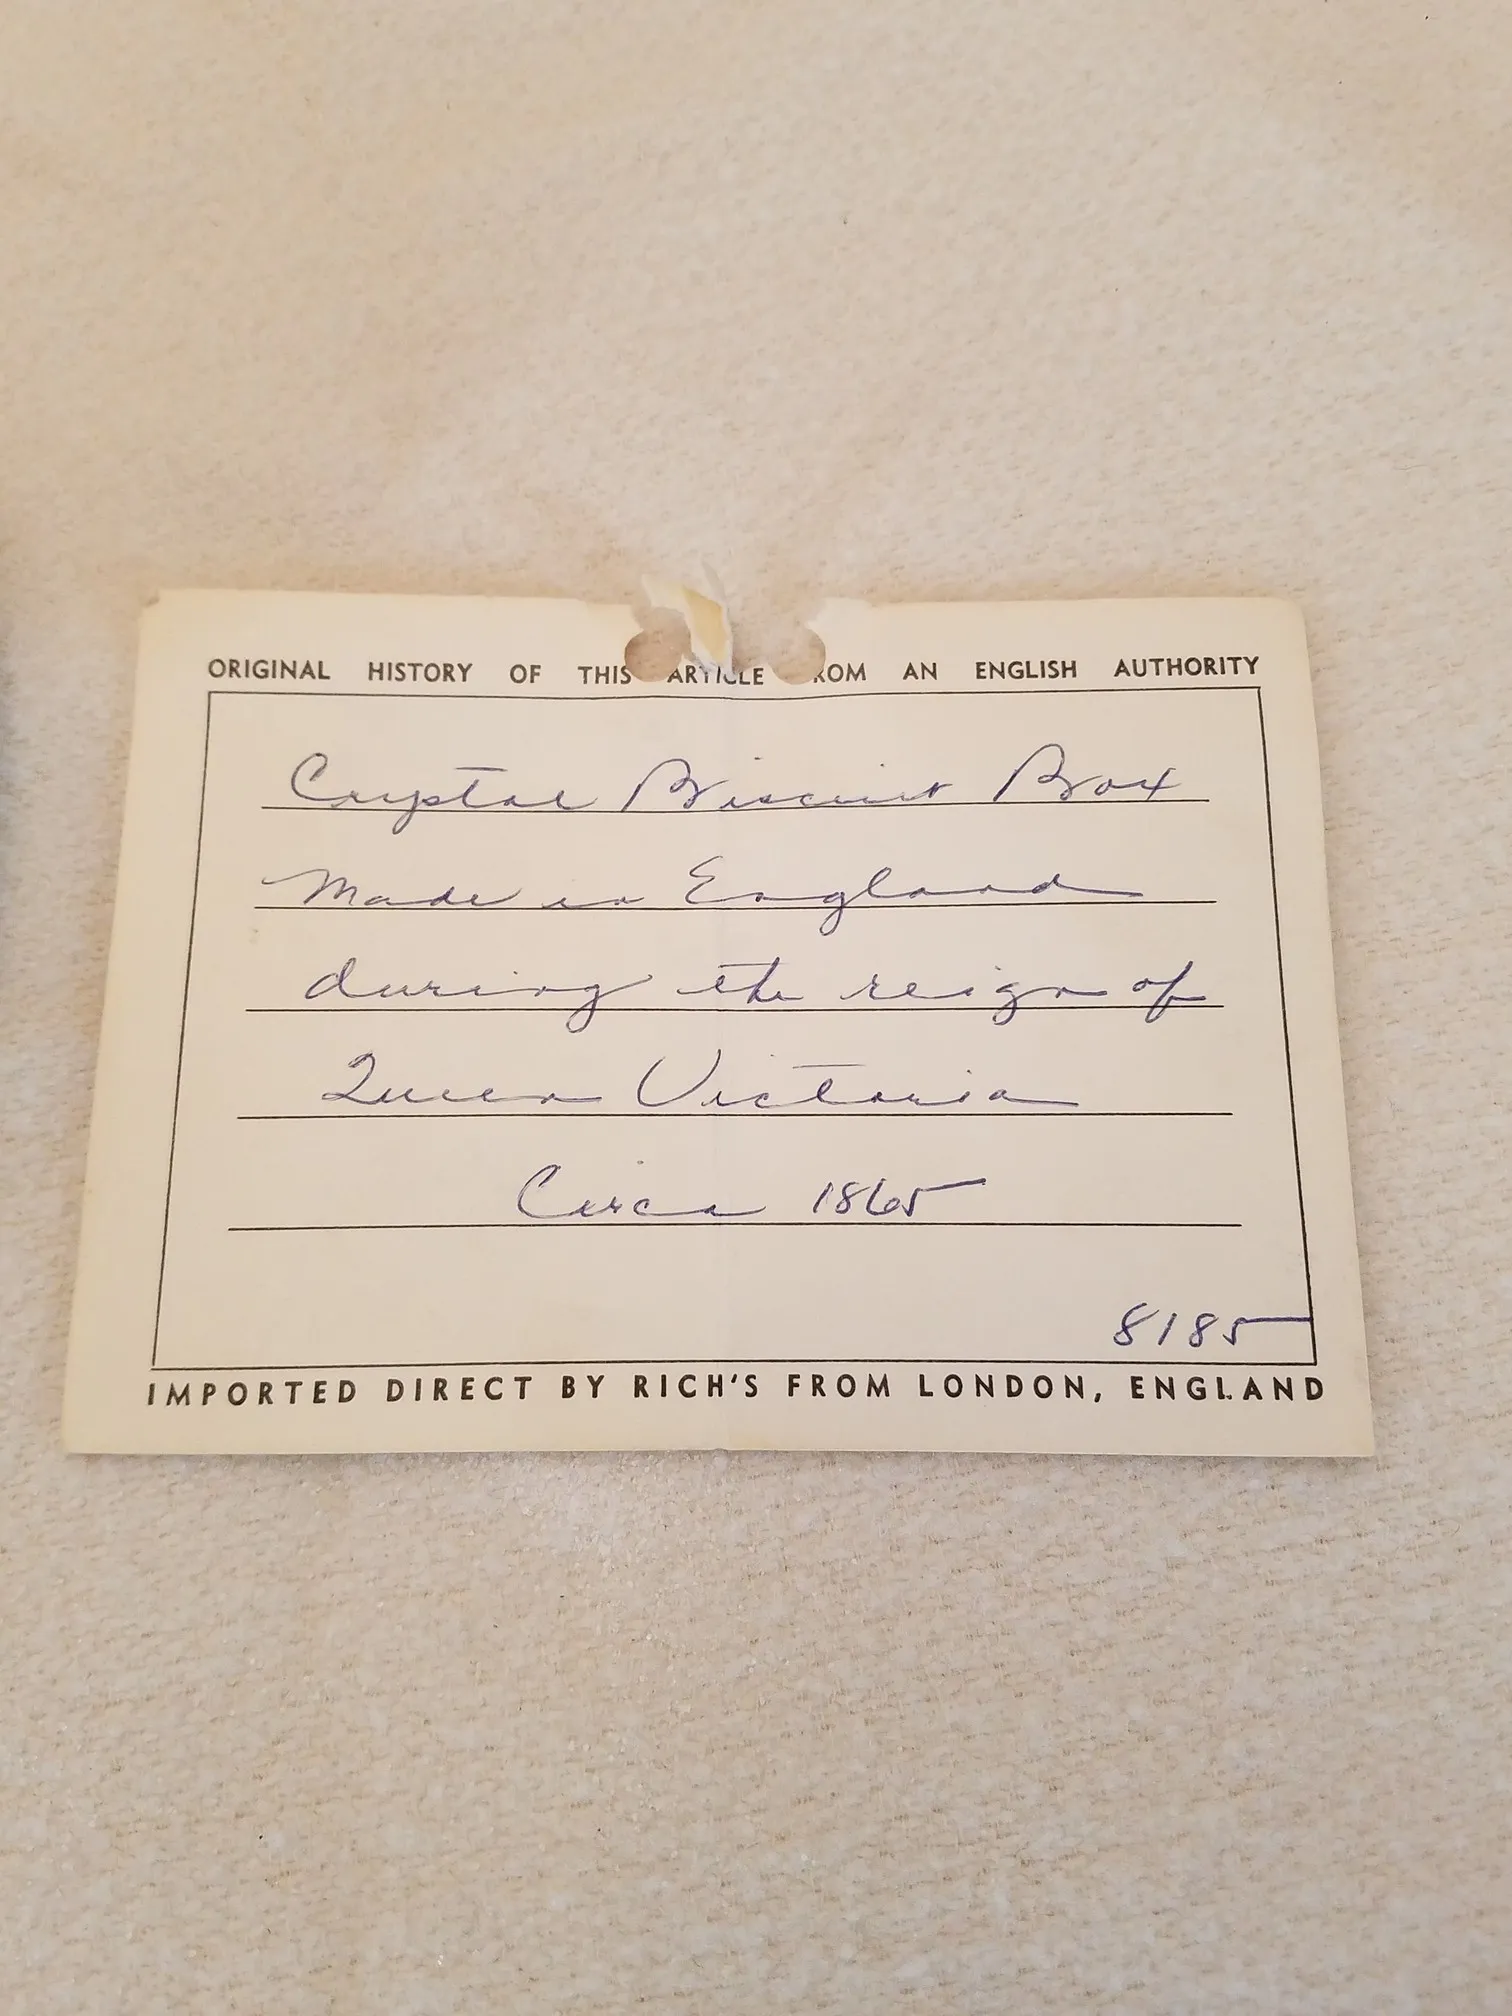 ORIGINAL HISTORY OF THIS ARTICLE FROM AN ENGLISH AUTHORITY
Crystal Biscuit Box
Made in England
during the reign of
Queen Victoria
Circa 1865
8185
IMPORTED DIRECT BY RICH'S FROM LONDON, ENGLAND